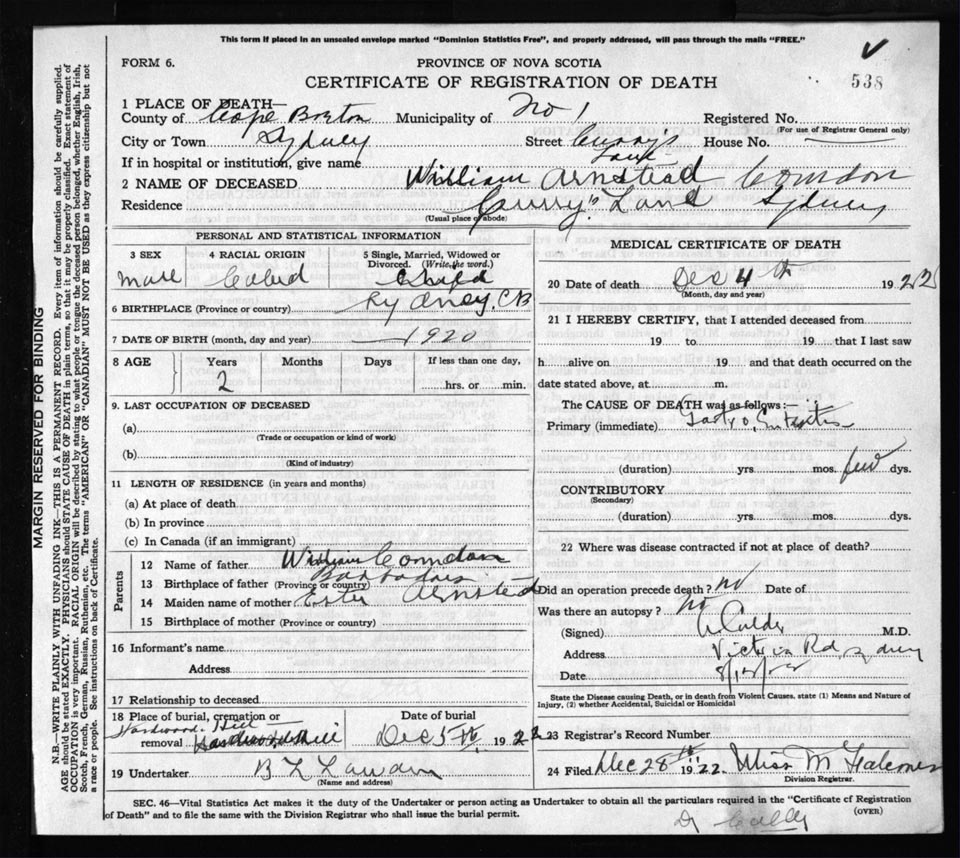 This form if placed in an unsealed envelope marked "Dominion Statistics Free", and properly addressed, will pass through the mails "FREE."
FORM 6.
PROVINCE OF NOVA SCOTIA
538
CERTIFICATE OF REGISTRATION OF DEATH
1 PLACE OF DEATH—
County of Cape Breton Municipality of No 1 Registered No.
(For use of Registrar General only)
City or Town Sydney Street Curry's Lane House No.
If in hospital or institution, give name
2 NAME OF DECEASED William Arnstead
Residence Curry's Land Sydney
(Usual place of abode)
PERSONAL AND STATISTICAL INFORMATION
3 SEX Male
4 RACIAL ORIGIN
5 Single, Married, Widowed or Divorced. (Write the word.) Child
6 BIRTHPLACE (Province or country) Sydney, CB
7 DATE OF BIRTH (month, day and year) 1920
8 AGE Years 2 Months Days If less than one day, hrs. or min.
9. LAST OCCUPATION OF DECEASED
(a)
(Trade or occupation or kind of work)
(b)
(Kind of industry)
11 LENGTH OF RESIDENCE (in years and months)
(a) At place of death
(b) In province
(c) In Canada (if an immigrant)
Parents
12 Name of father William
13 Birthplace of father (Province or country) Barbados
14 Maiden name of mother Ester Arnstead
15 Birthplace of mother (Province or country)
16 Informant's name
Address
17 Relationship to deceased
18 Place of burial, cremation or removal Hardwood Hill
Date of burial Dec 5th, 1922
19 Undertaker
(Name and address)
MEDICAL CERTIFICATE OF DEATH
20 Date of death Dec 4th 1922
(Month, day and year)
21 I HEREBY CERTIFY, that I attended deceased from
19 to 19 that I last saw
h alive on 19 and that death occurred on
date stated above, at m.
The CAUSE OF DEATH was as follows:—
Primary (immediate) Gastro Enteritis
(duration) yrs. mos. few dys.
CONTRIBUTORY
(Secondary)
(duration) yrs. mos. dys.
22 Where was disease contracted if not at place of death?
Did an operation precede death? No Date of
Was there an autopsy? No
(Signed) M.D.
Address Victoria Rd, Sydney
Date 8/12/22
State the Disease causing Death, or in death from Violent Causes, state (1) Means and Nature of Injury, (2) whether Accidental, Suicidal or Homicidal
23 Registrar's Record Number
24 Filed Dec 28th 1922. Miss M Falconer
Division Registrar.
SEC. 46—Vital Statistics Act makes it the duty of the Undertaker or person acting as Undertaker to obtain all the particulars required in the "Certificate of Registration
of Death" and to file the same with the Division Registrar who shall issue the burial permit.
(OVER)
MARGIN RESERVED FOR BINDING
N.B.—WRITE PLAINLY WITH UNFADING INK—THIS IS A PERMANENT RECORD. Every item of information should be carefully supplied.
AGE should be stated EXACTLY. PHYSICIANS should STATE CAUSE OF DEATH in plain terms, so that it may be properly classified. Exact statement of
OCCUPATION is very important. RACIAL ORIGIN will be described by stating to what people or tongue the deceased person belonged, whether English, Irish,
Scotch, French, German, Russian, Ruthenian, etc. The terms "AMERICAN" OR "CANADIAN" MUST NOT BE USED as they express citizenship but not
a race or people. See instructions on back of Certificate.